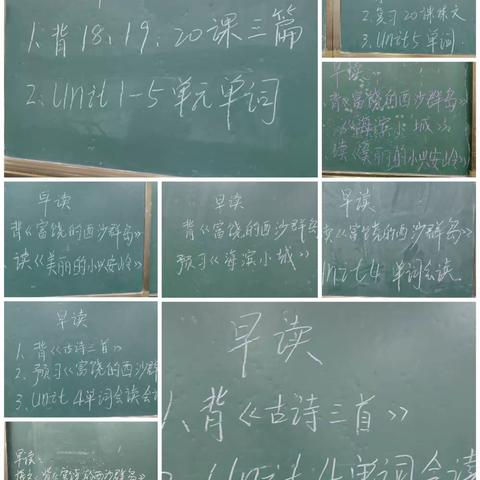 1、背18、19、20课三篇
2、Unit 1-5 单元单词
2.复习20课课文
3.Unit 5 单词
早读:
背《富饶的西沙群岛》
《海滨小城》
读《美丽的小兴安岭》
早读
背《富饶的西沙群岛》
读《美丽的小兴安岭》
早读
背《富饶的西沙群岛
预习《海滨小城》
早读
《富饶的西沙群岛》
Unit 4 单词会读
早读
1、背《古诗三首》
2、预习《富饶的西沙群
3、Unit 4单词会读会
早读
1、背《古诗三首》
Unit 4单词会读
早读:
背《富饶的西沙群岛》